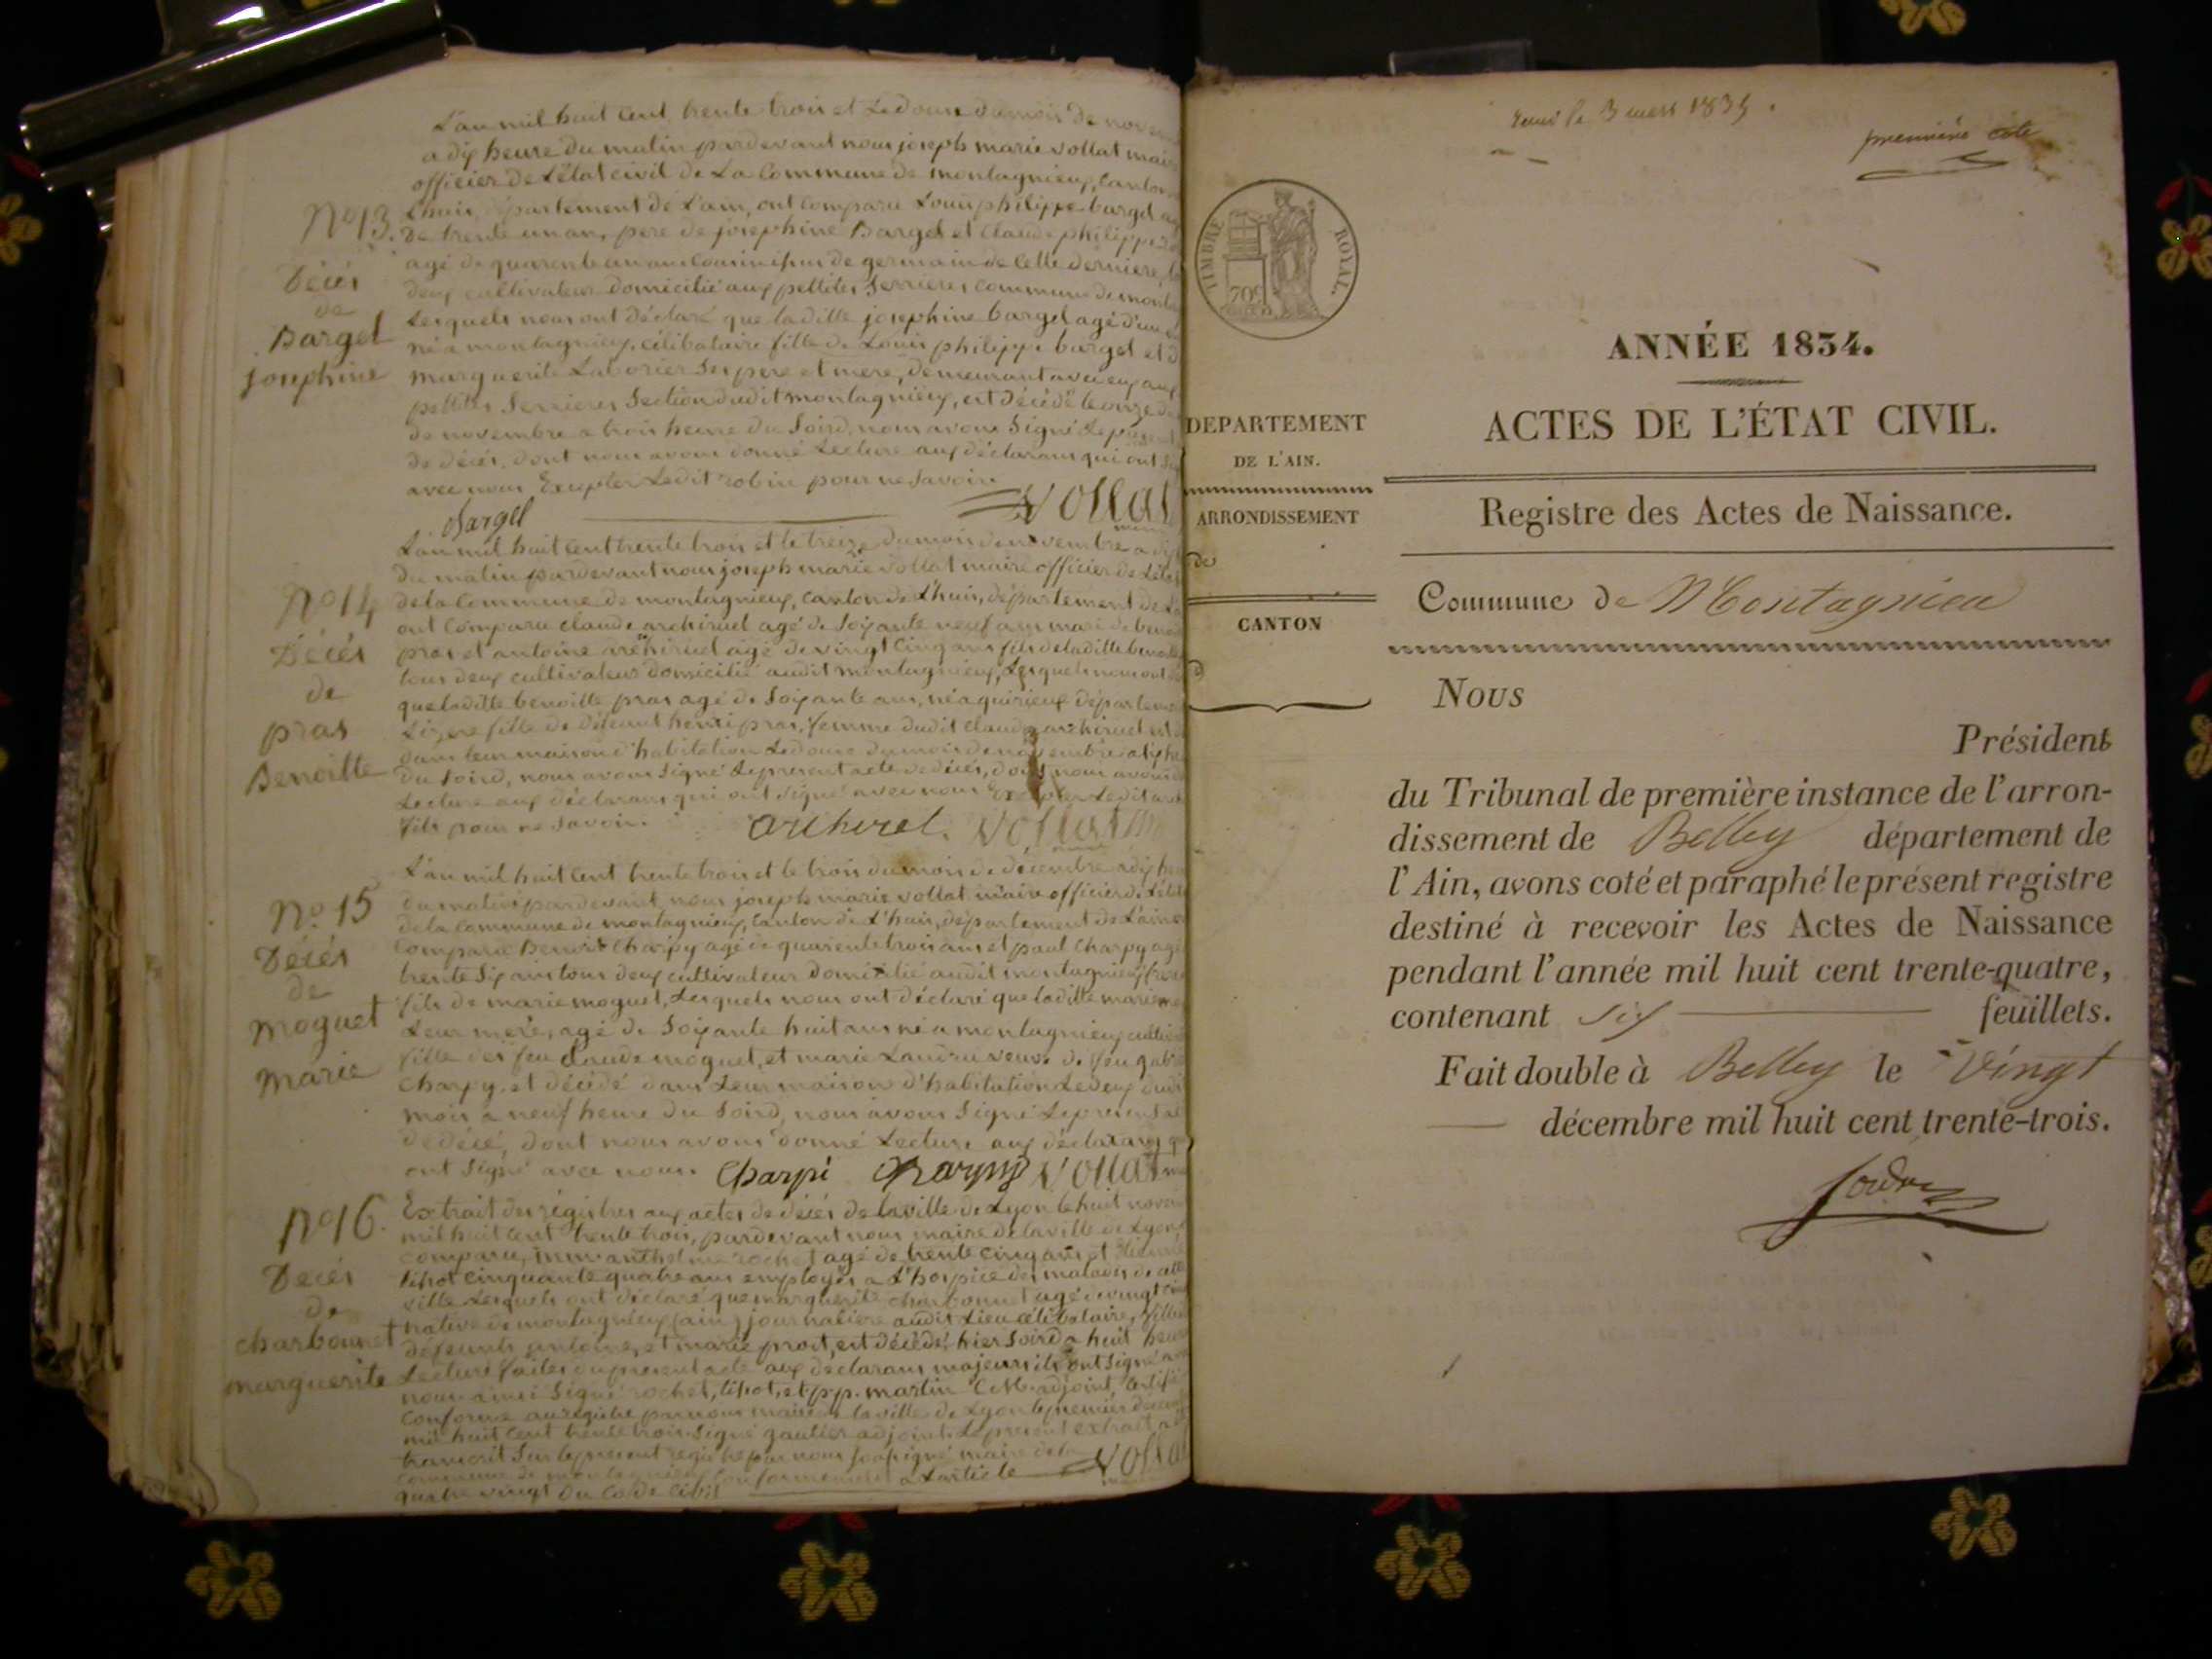 L'an mil huit cent trente trois et le douze du mois de
a dix heure du matin pardevant nous joseph marie vollat
officier de l'état civil de la Commune de montagnieux, canton
Lhuis, département de L'ain, ont comparu Louis philippe bargel
N° 13.
de trente un ans, pere de josephine Bargel et Claude philippe
agé de quarente un ans Cousin issus de germain de cette derniere
Décés
de
Bargel
josephine
deux cultivateur domicilié aux pettites Serrieres commune de
Lesquels nous ont déclaré que laditte josephine bargel agé d'un
né a montagnieux, célibataire fille de Louis philippe bargel et
marguerite Laborier Ses pere et mere, demeurant avec eux aux
pettites Serrieres Section dudit montagnieux, est décédé le onze
de novembre a trois heure du Soird, nous avons Signé le
de décés, dont nous avons donné Lecture aux déclarans qui ont
avec nous Excepter Ledit robin pour ne Savoir.
Bargel
vollat
L'an mil huit cent trente trois et le treize du mois de novembre a dix
du matin pardevant nous joseph marie vollat maire officier de
N° 14
Décés
de
pras
Benoitte
de la Commune de montagnieux, canton de Lhuis, département de
ont comparu claude archiruel agé de Soixante neuf ans mari de
pras et antoine archiruel agé de vingt Cinq ans fils de laditte
tous deux cultivateur domicilié audit montagnieux, Lesquels nous ont
que laditte benoitte pras agé de Soixante ans, né a quirieux
Lizere fille de défeunt henri pras, femme dudit claude archiruel est
dans leur maison d'habitation Le douze du mois de novembre a dix
du Soird, nous avons Signé Le present acte de décés, dont nous avons
Lecture aux déclarans qui ont Signé avec nous Excepter Ledit
fils pour ne Savoir.
vollat
L'an mil huit cent trente trois et le trois du mois de décembre a dix
du matin pardevant nous joseph marie vollat maire officier de
N° 15
Décés
de
moguet
marie
de la Commune de montagnieux, Canton de L'huis, département de L'ain
Comparu Benoit Charpy agé de quarente trois ans et paul Charpy
trente Six ans tous deux cultivateur domicilié audit montagnieux
fils de marie moguet, Lesquels nous ont déclaré que laditte marie
Leur mere, agé de Soixante huit ans né a montagnieux
fille des feu Claude moguet, et marie veuve de feu
Charpy, et décédé dans Leur maison d'habitation Le deux
mois a neuf heure du Soird, nous avons Signé Le present
de décés, dont nous avons donné Lecture aux déclarans
ont Signé avec nous. Charpi Charpy vollat
N° 16.
Décés
de
charbonnet
marguerite
Extrait des régistres aux actes de décés de la ville de Lyon le huit
mil huit cent trente trois, pardevant nous maire de la ville de Lyon
comparu, anthelme rochet agé de trente cinq ans et
cinquante quatre ans employés a L'hospice des malades de
ville Lesquels ont déclaré que marguerite charbonnet agé de vingt
native de montagnieux (ain) journaliere audit Lieu célibataire, fille
defeunts antoine, et marie prost, est décédé hier Soird a huit
Lecture faites du present acte aux déclarans majeurs ils ont Signé
nous ainsi Signé rochet, et p.p. martin adjoint,
conforme au régistre par nous maire de la ville de Lyon le premier
mil huit cent trente trois Signé gautier adjoint. Le present extrait
transcrit Sur le present registre par nous Soussigné maire de la
commune de montagnieux conformement a L'article vollat
quatre vingt du Code Civil
3 mars 1834.
première cote
TIMBRE ROYAL.
70c
ANNÉE 1834.
ACTES DE L'ÉTAT CIVIL.
Registre des Actes de Naissance.
DEPARTEMENT
DE L'AIN.
ARRONDISSEMENT
de
CANTON
d
Commune de Montagnieu
Nous
Président
du Tribunal de première instance de l'arron-
dissement de Belley département de
l'Ain, avons coté et paraphé le présent registre
destiné à recevoir les Actes de Naissance
pendant l'année mil huit cent trente-quatre,
contenant Six feuillets.
Fait double à Belley le Vingt
décembre mil huit cent trente-trois.